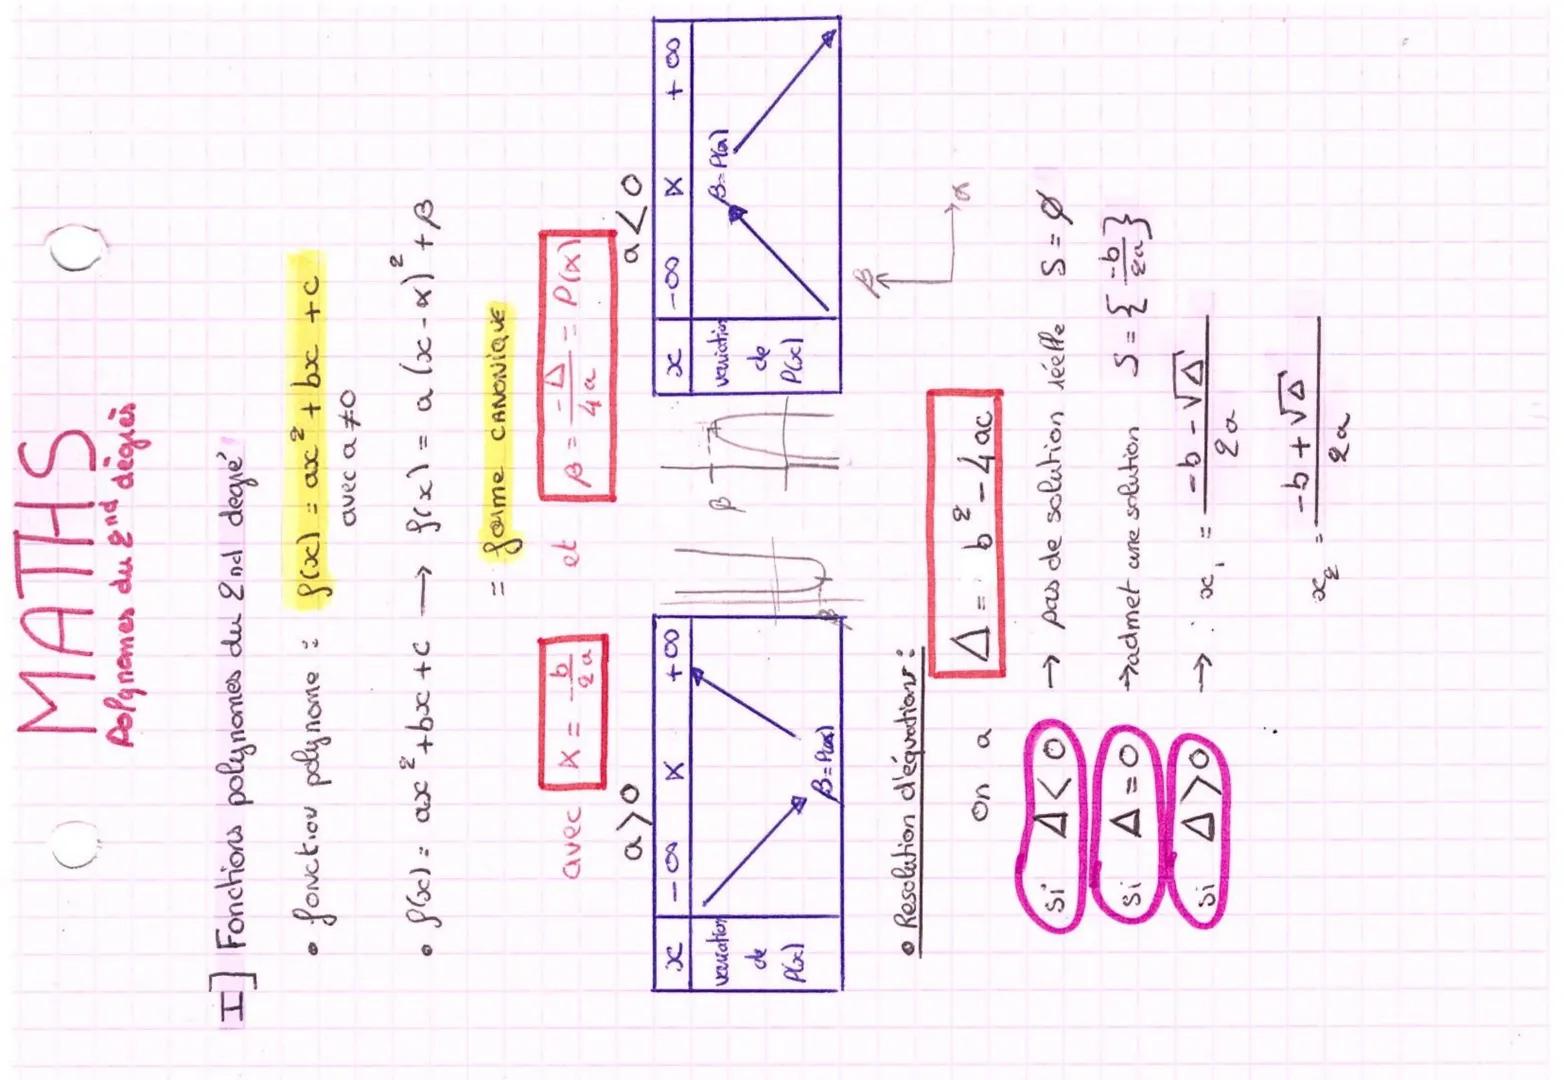 MATHS
Polynomes du 2nd degrés
I] Fonctions polynomes du 2nd degré
• fonction polynome : f(x) = ax² + bx + c
avec a ≠ 0
• f(x) = ax² + bx + c → f(x) = a(x - α)² + β
= forme CANONIQUE
avec α = -b/2a et β = -Δ/4a = P(α)
a > 0
x -∞ α +∞
variation de P(x)
β = P(α)
β
a < 0
x -∞ α +∞
variation de P(x)
β = P(α)
β
β
α
• Resolution d'équations :
on a Δ = b² - 4ac
Si Δ < 0 → pas de solution réelle S = ∅
Si Δ = 0 → admet une solution S = {-b/2a}
Si Δ > 0 → x₁ = -b - √Δ / 2a
x₂ = -b + √Δ / 2a